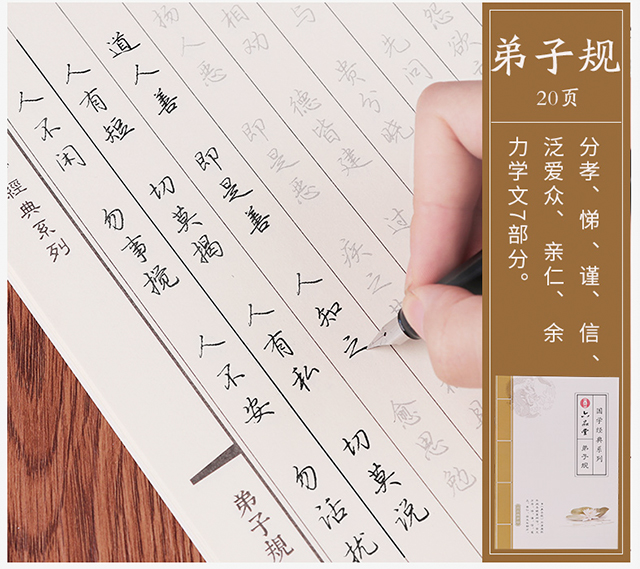 怨欲
先问
与 贵分晓
相劝 德皆建 过
扬人恶 即是恶 疾之
道人善 即是善 人知之 愈思勉
人有短 切莫揭 人有私 切莫说
人不闲 勿事搅 人不安 勿话扰
經典系列
弟子規
弟子规
20页
分孝、悌、谨、信、
泛爱众、亲仁、余
力学文7部分。
国学经典系列
六品堂
弟子规